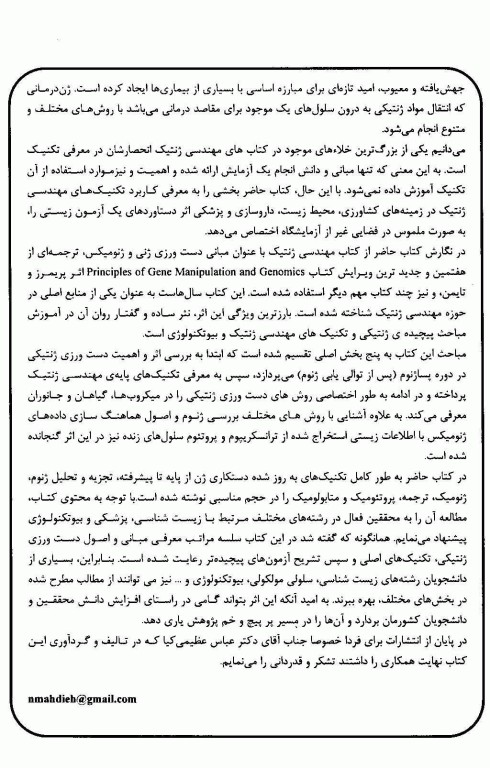 جهش‌یافته و معیوب، امید تازه‌ای برای مبارزه اساسی با بسیاری از بیماری‌ها ایجاد کرده است. ژن‌درمانی
که انتقال مواد ژنتیکی به درون سلول‌های یک موجود برای مقاصد درمانی می‌باشد با روش‌های مختلف و
متنوع انجام می‌شود.
می‌دانیم یکی از بزرگ‌ترین خلاءهای موجود در کتاب های مهندسی ژنتیک انحصارشان در معرفی تکنیک
است. به این معنی که تنها مبانی و دانش انجام یک آزمایش ارائه شده و اهمیت و نیزموارد استفاده از آن
تکنیک آموزش داده نمی‌شود. با این حال، کتاب حاضر بخشی را به معرفی کاربرد تکنیک‌های مهندسی
ژنتیک در زمینه‌های کشاورزی، محیط زیست، داروسازی و پزشکی اثر دستاوردهای یک آزمون زیستی را،
به صورت ملموس در فضایی غیر از آزمایشگاه اختصاص می‌دهد.
در نگارش کتاب حاضر از کتاب مهندسی ژنتیک با عنوان مبانی دست ورزی ژنی و ژنومیکس، ترجمه‌ای از
هفتمین و جدید ترین ویرایش کتاب Principles of Gene Manipulation and Genomics اثر پریمرز و
تایمن، و نیز چند کتاب مهم دیگر استفاده شده است. این کتاب سال‌هاست به عنوان یکی از منابع اصلی در
حوزه مهندسی ژنتیک شناخته شده است. بارزترین ویژگی این اثر، نثر ساده و گفتار روان آن در آموزش
مباحث پیچیده ی ژنتیکی و تکنیک های مهندسی ژنتیک و بیوتکنولوژی است.
مباحث این کتاب به پنج بخش اصلی تقسیم شده است که ابتدا به بررسی اثر و اهمیت دست ورزی ژنتیکی
در دوره پساژنوم (پس از توالی یابی ژنوم) می‌پردازد، سپس به معرفی تکنیک‌های پایه‌ی مهندسی ژنتیک
پرداخته و در ادامه به طور اختصاصی روش های دست ورزی ژنتیکی را در میکروب‌ها، گیاهان و جانوران
معرفی می‌کند. به علاوه آشنایی با روش های مختلف بررسی ژنوم و اصول هماهنگ سازی داده‌های
ژنومیکس با اطلاعات زیستی استخراج شده از ترانسکریپوم و پروتئوم سلول‌های زنده نیز در این اثر گنجانده
شده است.
در کتاب حاضر به طور کامل تکنیک‌های به روز شده دستکاری ژن از پایه تا پیشرفته، تجزیه و تحلیل ژنوم،
ژنومیک، ترجمه، پروتئومیک و متابولومیک را در حجم مناسبی نوشته شده است.با توجه به محتوی کتاب،
مطالعه آن را به محققین فعال در رشته‌های مختلف مرتبط با زیست شناسی، پزشکی و بیوتکنولوژی
پیشنهاد می‌نمایم. همانگونه که گفته شد در این کتاب سلسه مراتب معرفی مبانی و اصول دست ورزی
ژنتیکی، تکنیک‌های اصلی و سپس تشریح آزمون‌های پیچیده‌تر رعایت شده است. بنابراین، بسیاری از
دانشجویان رشته‌های زیست شناسی، سلولی مولکولی، بیوتکنولوژی و ... نیز می توانند از مطالب مطرح شده
در بخش‌های مختلف، بهره ببرند. به امید آنکه این اثر بتواند گامی در راستای افزایش دانش محققین و
دانشجویان کشورمان بردارد و آن‌ها را در مسیر پر پیچ و خم پژوهش یاری دهد.
در پایان از انتشارات برای فردا خصوصا جناب آقای دکتر عباس عظیمی‌کیا که در تالیف و گردآوری این
کتاب نهایت همکاری را داشتند تشکر و قدردانی را می‌نمایم.
nmahdieh@gmail.com